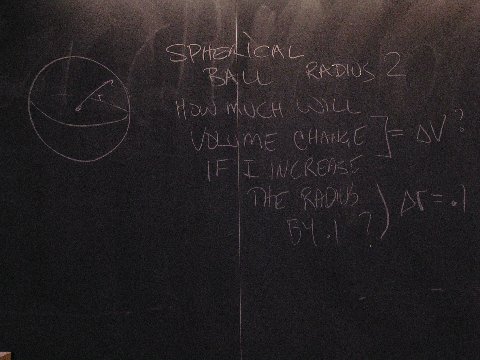 SPHERICAL
BALL RADIUS 2
HOW MUCH WILL
VOLUME CHANGE ] = ΔV?
IF I INCREASE
THE RADIUS
BY .1 ? ) Δr = .1
r